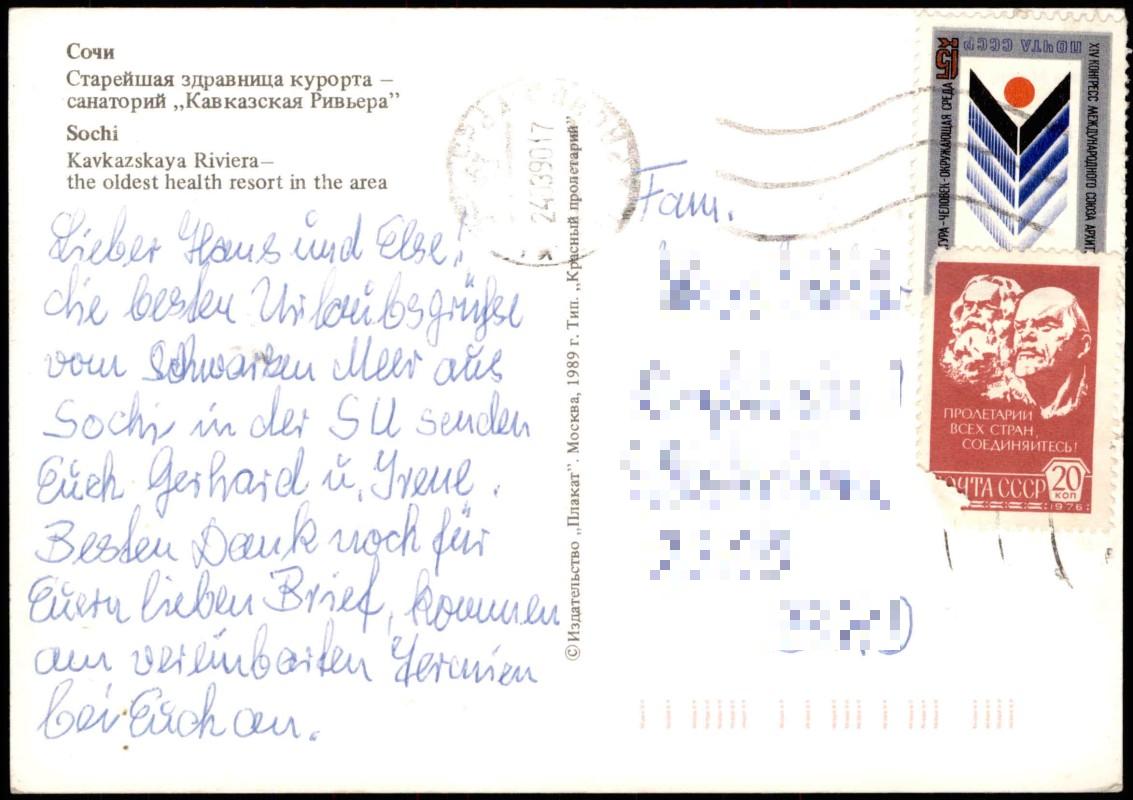 Сочи
Старейшая здравница курорта –
санаторий „Кавказская Ривьера”
Sochi
Kavkazskaya Riviera–
the oldest health resort in the area
Lieber Hans und Else!
die besten Urlaubsgrüße
vom Schwarzen Meer aus
Sochi in der SU senden
Euch Gerhard u. Irene.
Besten Dank noch für
Euern lieben Brief, kommen
am vereinbarten Termien
bei Euch an.
©Издательство „Плакат”. Москва, 1989 г. Тип. „Красный пролетарий”
24139017
Fam.
ПОЧТА СССР
15
XIV КОНГРЕСС МЕЖДУНАРОДНОГО СОЮЗА АРХИТ
ТУРА-ЧЕЛОВЕК-ОКРУЖАЮЩАЯ СРЕДА
ПРОЛЕТАРИИ
ВСЕХ СТРАН,
СОЕДИНЯЙТЕСЬ!
ПОЧТА СССР
20
КОП
1976